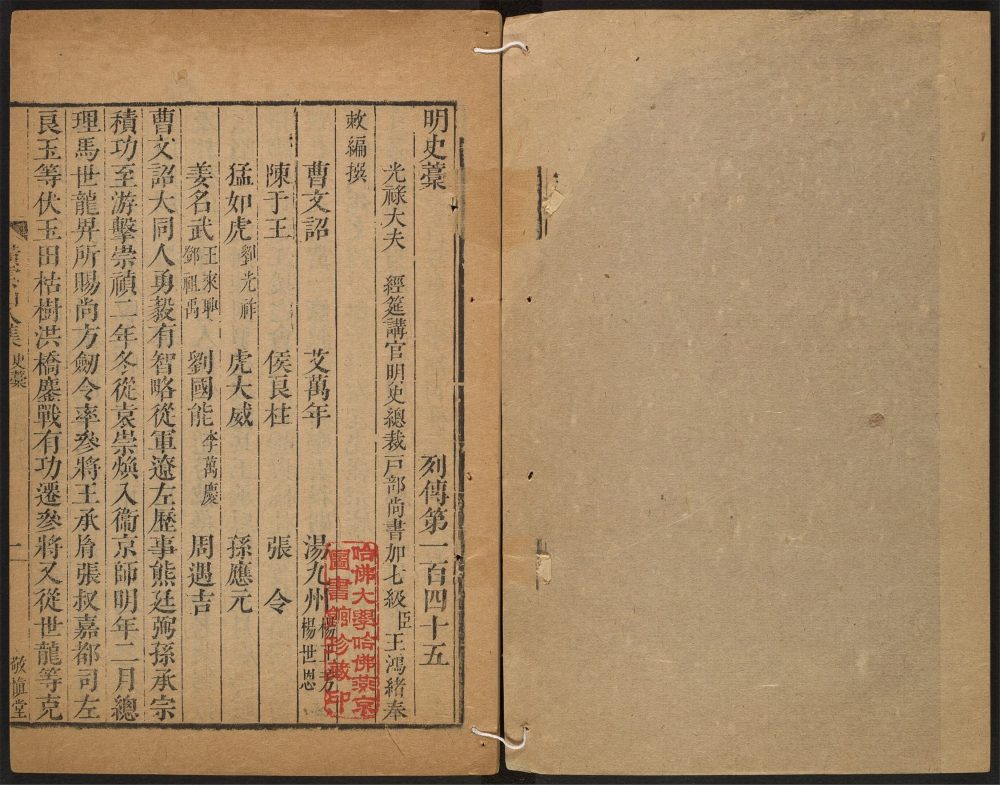 明史藁 列傳第一百四十五
光祿大夫 經筵講官明史總裁戶部尚書加七級臣王鴻緒奉
敕編撰
曹文詔 艾萬年 湯九州 楊世恩
陳于王 侯良柱 張 令
猛如虎 劉光祚 虎大威 孫應元
姜名武 王來聘 鄧祖禹 劉國能 李萬慶 周遇吉
曹文詔大同人勇毅有智略從軍遼左歷事熊廷弼孫承宗
積功至游擊崇禎二年冬從袁崇煥入衞京師明年二月總
理馬世龍昇所賜尚方劒令率參將王承胤張叔嘉都司左
良玉等伏玉田枯樹洪橋鏖戰有功遷參將又從世龍等克
史藁
一
敬愼堂
哈佛大學哈佛燕京
圖書館珍藏印